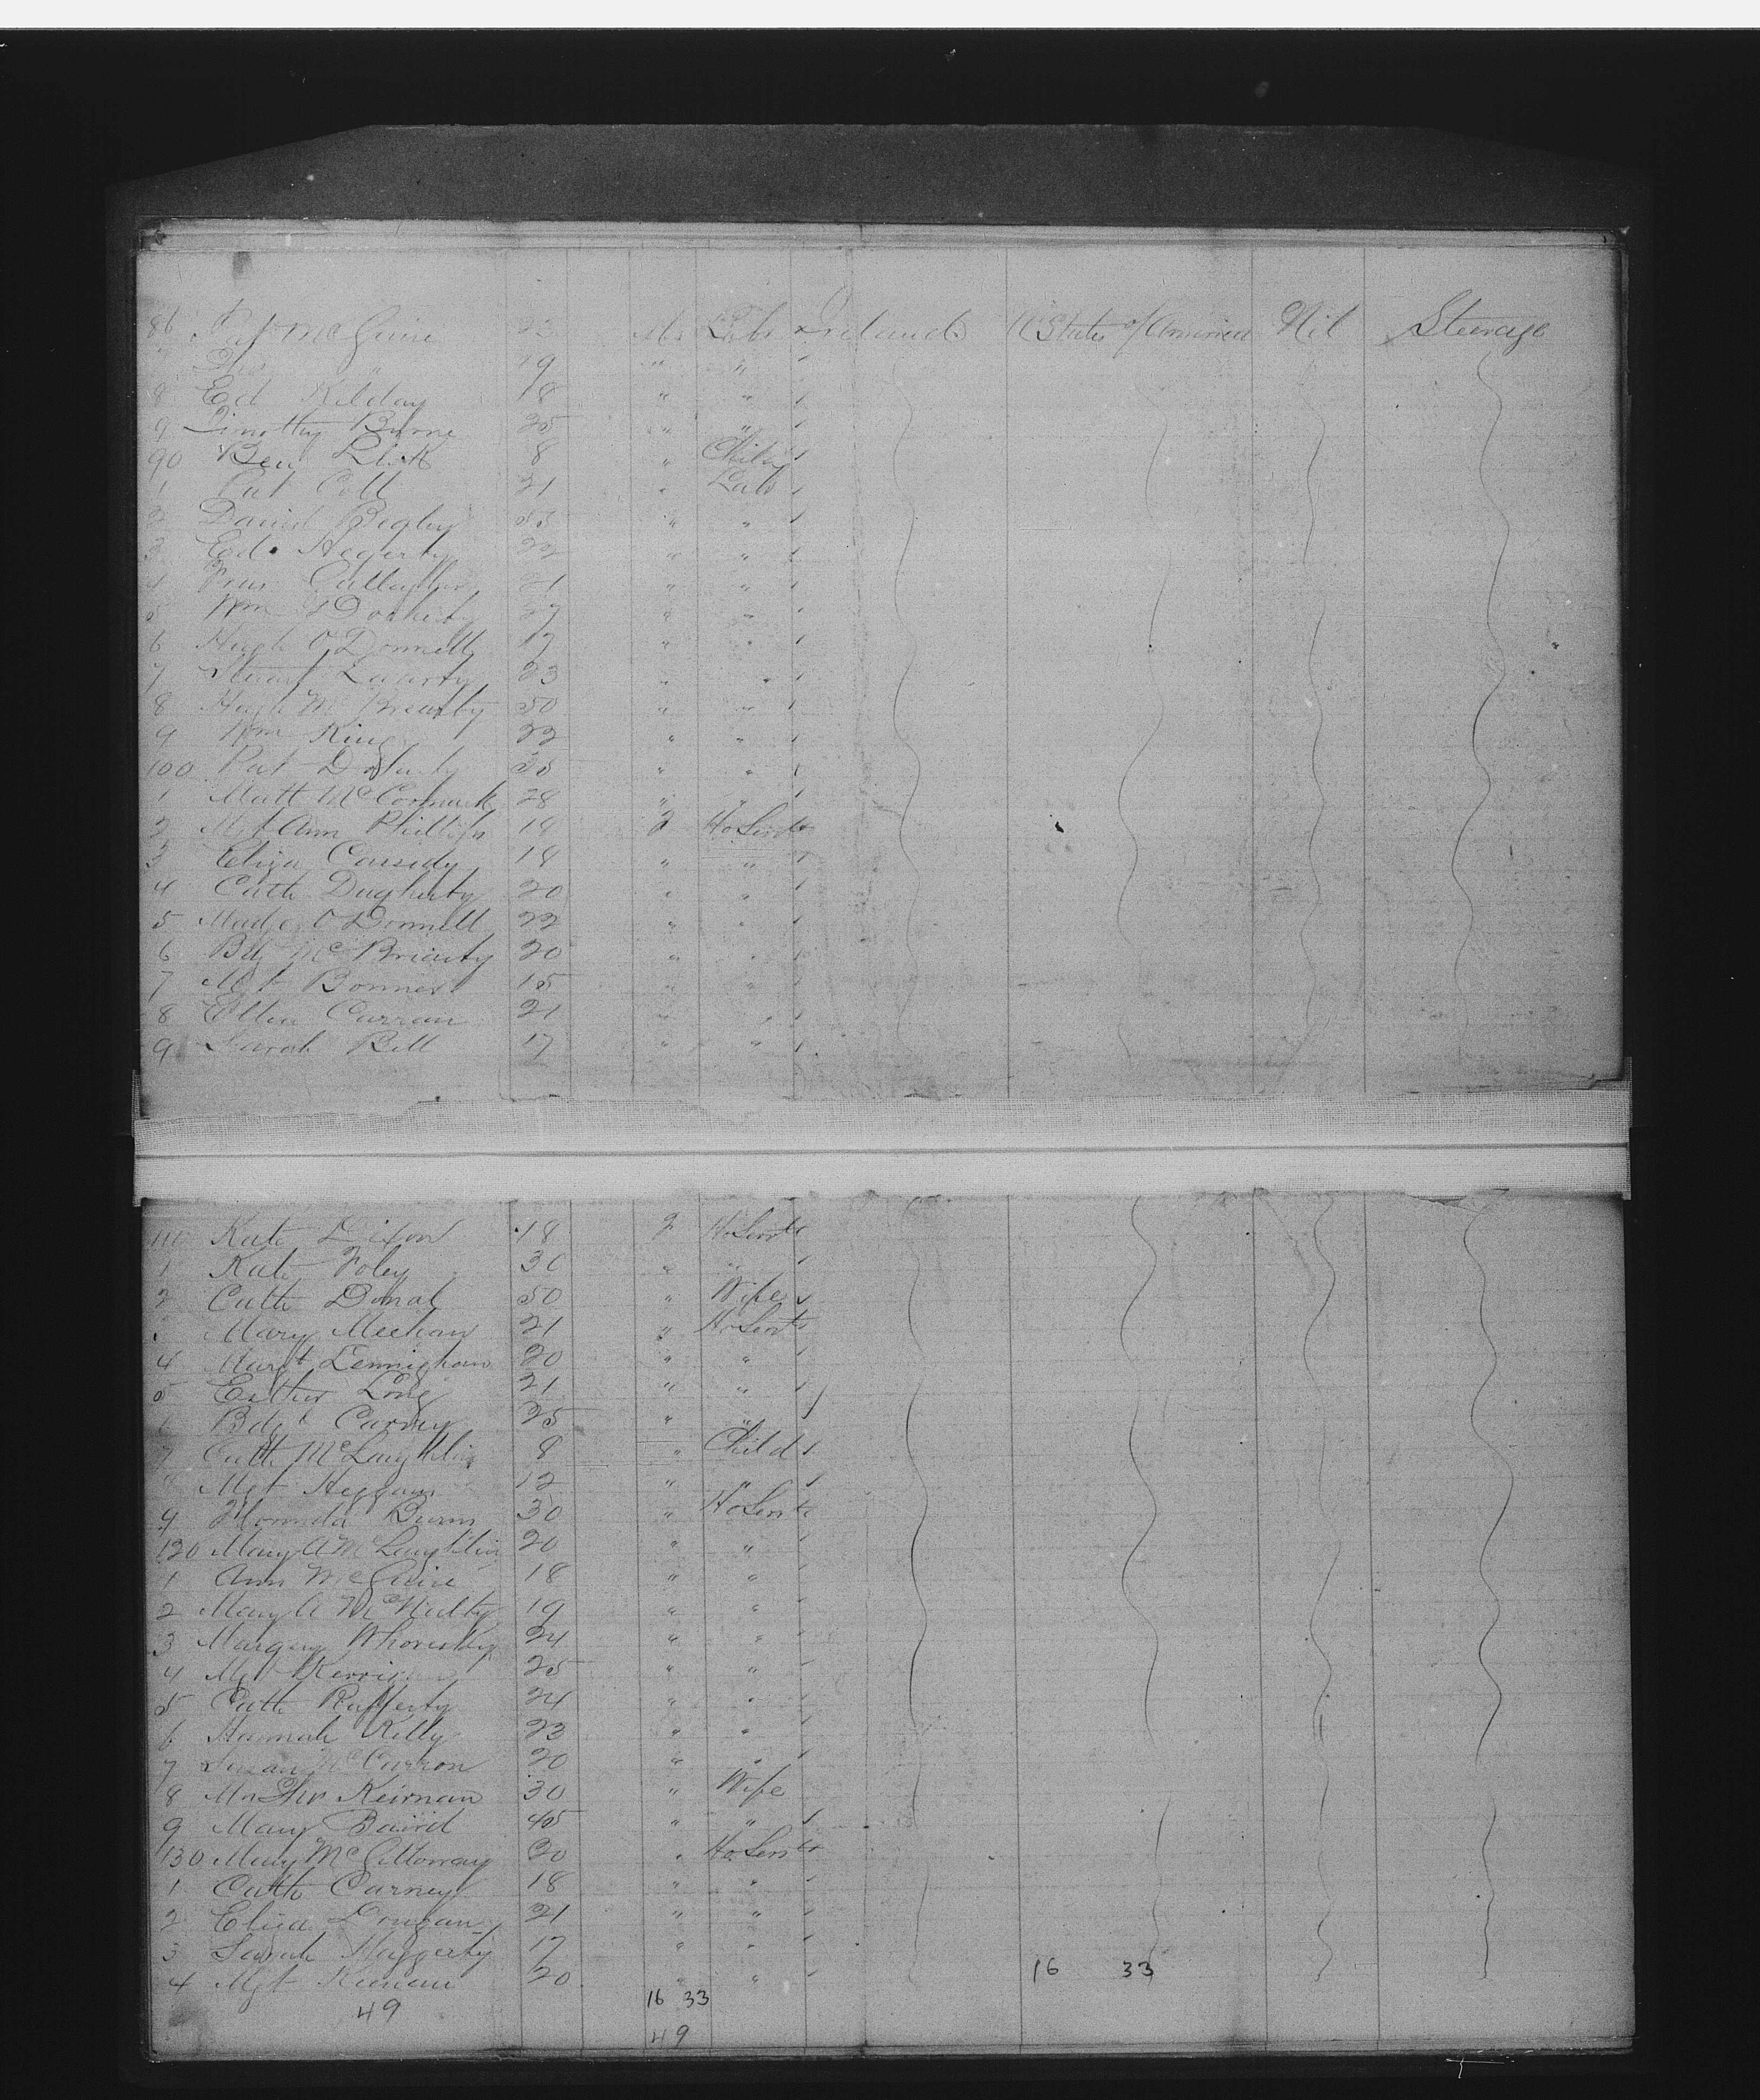 86 Pat McGuire 22 M Lab Ireland U States of America Nil Steerage
" " 19 " "
8 Ed Kilday 18 " "
9 Timothy Byrne 25 " "
90 Ben 8 " Child
1 Pat Coll 21 " Lab
2 David Begley 55 " "
3 Ed. Hegerty 22 " "
4 Gallagher 21 " "
5 Wm 27 " "
6 Hugh O'Donnell 17 " "
7 Stewart 23 " "
8 Hugh Mc Brearty 50 " "
9 Wm King 22 " "
100 Pat Doherty 35 " "
1 Matt McCormack 28 " "
2 Mgt Ann Phillips 18 F Ho Servt
3 Eliza Cassidy 18 " "
4 Cath Dugherty 20 " "
5 Madge O'Donnell 22 " "
6 Bdg McBriarty 20 " "
7 Mgt Bonner 15 " "
8 Ellen Curran 21 " "
9 Sarah Bell 17 " "
110 Kate Dixon 18 F Ho Servt
1 Kate Foley 30 " "
2 Cath Donal 50 " Wife
3 Mary Meehan 21 " Ho Servt
4 Margt Lennighan 20 " "
5 Esther Long 21 " "
6 Bdgt Carney 25 " "
7 Cath McLaughlin 8 " Child
8 Mgt Heggans 12 " "
9 Burns 30 " Ho Servt
120 Mary A McLaughlin 20 " "
1 Ann McGuire 18 " "
2 Mary A McNulty 19 " "
3 Margery Whoriskey 24 " "
4 Mgt 25 " "
5 Cath Rafferty 24 " "
6 Hannah Kelly 23 " "
7 Susan McCarron 20 " "
8 Keirnan 30 " Wife
9 Mary Baird 45 " "
130 Mary 20 " Ho Servt
1 Cath Carney 18 " "
2 Eliza Dougan 21 " "
3 Sarah Haggerty 17 " "
4 Mgt Keenan 20 " " 16 33
49 16 33
49